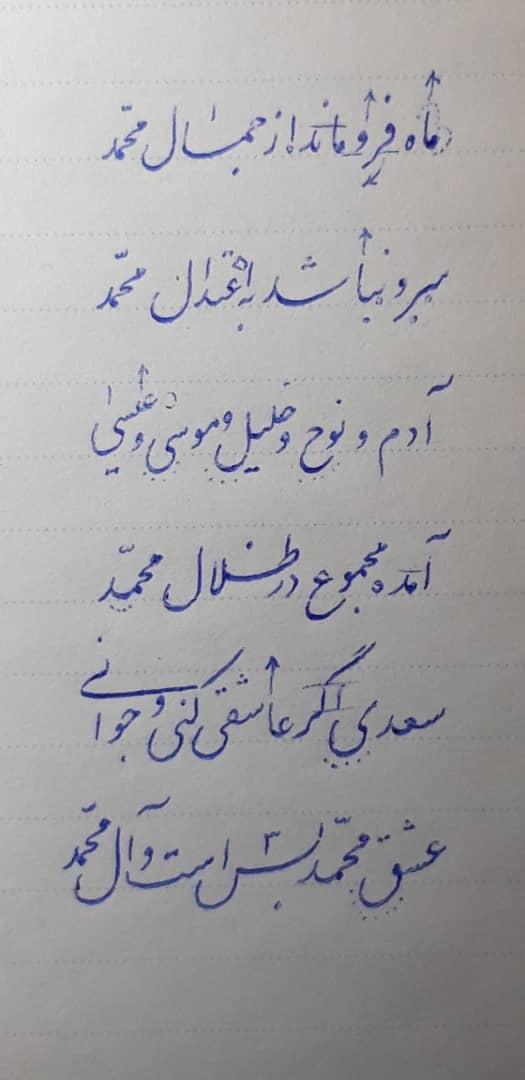 ماه فرو ماند از جمال محمّد
سرو نباشد به اعتدال محمّد
آدم و نوح و خلیل و موسی و عیسی
آمده مجموع در ظلال محمّد
سعدی اگر عاشقی کنی و جوانی
عشق محمّد بس است و آل محمّد